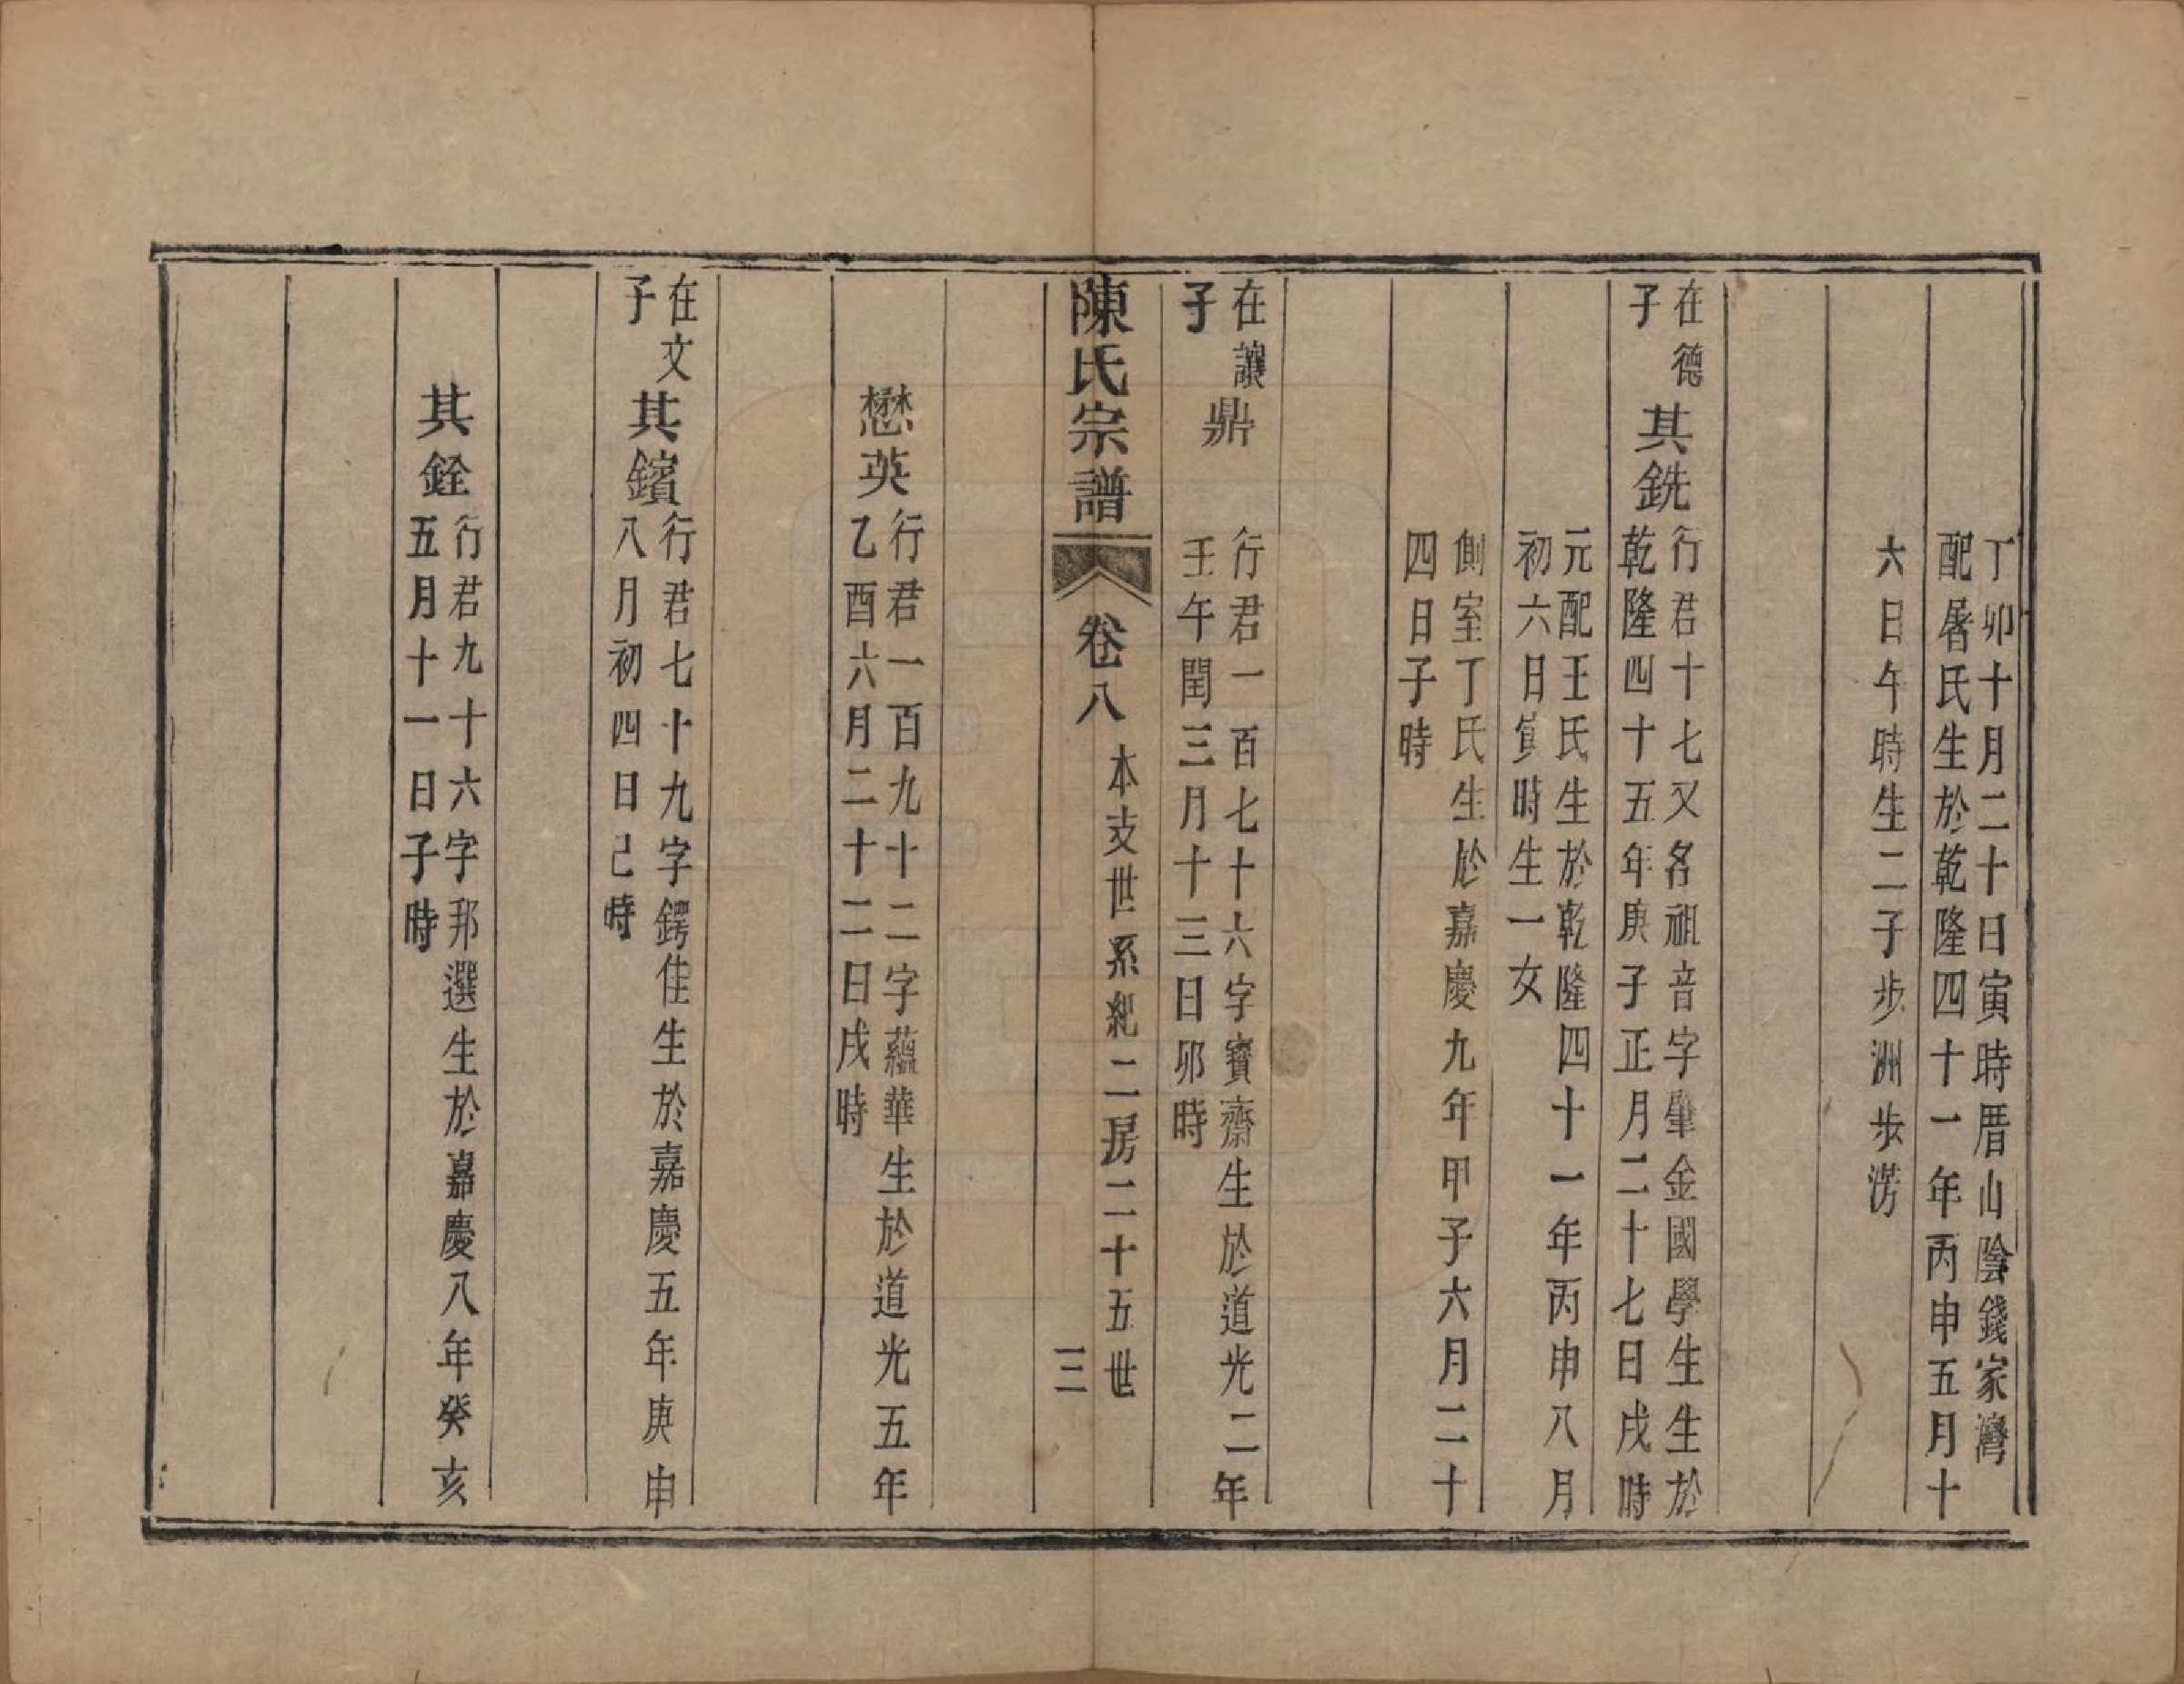 丁卯十月二十日寅時厝山陰錢家灣
配屠氏生於乾隆四十一年丙申五月十
六日午時生二子步洲步澇
在德
子
其銑
行君十七又名祖音字肇金國學生生於
乾隆四十五年庚子正月二十七日戌時
元配王氏生於乾隆四十一年丙申八月
初六日寅時生一女
側室丁氏生於嘉慶九年甲子六月二十
四日子時
在讓
子
鼎
行君一百七十六字寶齋生於道光二年
壬午閏三月十三日卯時
陳氏宗譜
卷八
本支世系紀二房二十五世
三
懋英
行君一百九十二字蘊華生於道光五年
乙酉六月二十二日戌時
在文
子
其鑌
行君七十九字鍔佳生於嘉慶五年庚申
八月初四日己時
其銓
行君九十六字邦選生於嘉慶八年癸亥
五月十一日子時